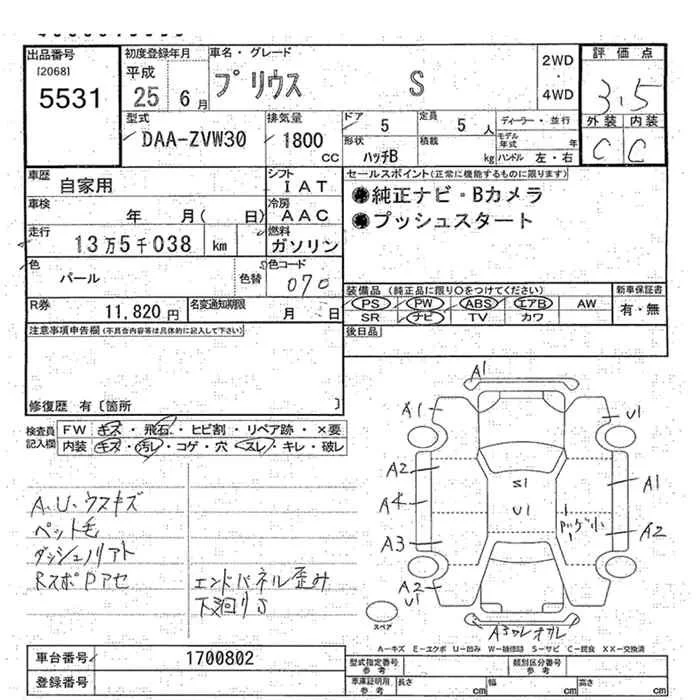 出品番号
[2068]
5531
初度登録年月
平成
25 6月
車名・グレード
プリウス S
2WD
・
4WD
評価点
3.5
外装 内装
C C
型式
DAA-ZVW30
排気量
1800
CC
ドア 5
定員 5人
ディーラー・並行
形状
ハッチB
積載
kg
モデル年式 年
ハンドル 左・右
車歴
自家用
シフト
IAT
セールスポイント(正常に機能するものに限ります)
●純正ナビ・Bカメラ
●プッシュスタート
車検
年 月( 日)
冷房
AAC
走行
13万5千038 km
燃料
ガソリン
色
パール
色替
色コード
070
装備品(純正品に限り○をつけてください)
PS PW ABS エアB AW
SR ナビ TV カワ
新車保証書
有・無
R券
11,820円
名変通知期限
月 日
後日品
注意事項申告欄(不具合内容等は具体的に記入して下さい)
修復歴 有〔箇所 〕
検査員
記入欄
FW キズ・飛石・ヒビ割・リペア跡・×要
内装 キズ・汚レ・コゲ・穴・スレ・キレ・破レ
A.U.ウスキズ
ペット毛
ダッシュノリアト
エンドパネル歪み
下廻りS
A1
A1
U1
A2
S1
A1
A4
U1
A2
A3
A2
U1
スペア
A-キズ E-エクボ U-凹み W-補修跡 S-サビ C-腐食 XX-交換済
車台番号
1700802
登録番号
型式指定番号
参考
類別区分番号
参考
車庫証明用
参考
長さ cm 幅 cm 高さ cm